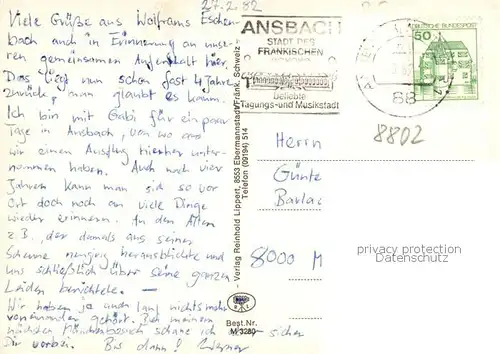 27.2.82
Viele Grüße aus Wolframs Eschen-
bach auch in Erinnerung an unse-
ren gemeinsamen Aufenthalt hier.
Das liegt nun schon fast 4 Jahre
zurück, man glaubt es kaum.
Ich bin mit Gabi für ein paar
Tage in Ansbach, von wo aus
wir einen Ausflug hierher unter-
nommen haben. Auch nach vier
Jahren kann man sich so vor
Ort doch noch an viele Dinge
wieder erinnern. An den Alten
z.B., der damals aus seiner
Scheune neugierig herausblickte und
uns schließlich über seine ganzen
Leiden berichtete. –
Wir haben ja auch lang nichts mehr
voneinander gehört. Bei meinem
nächsten Münchenbesuch schaue ich sicher
Dir vorbei. Bis dann! Werner
- Verlag Reinhold Lippert, 8553 Ebermannstadt/Fränk. Schweiz -
Telefon (09194) 514
Best.Nr.
M 3280
ANSBACH
STADT DES
FRÄNKISCHEN
Beliebte
Tagungs-und Musikstadt
88
DEUTSCHE BUNDESPOST
50
8802
Herrn
Günte
Barlac
8000 M
privacy protection
Datenschutz